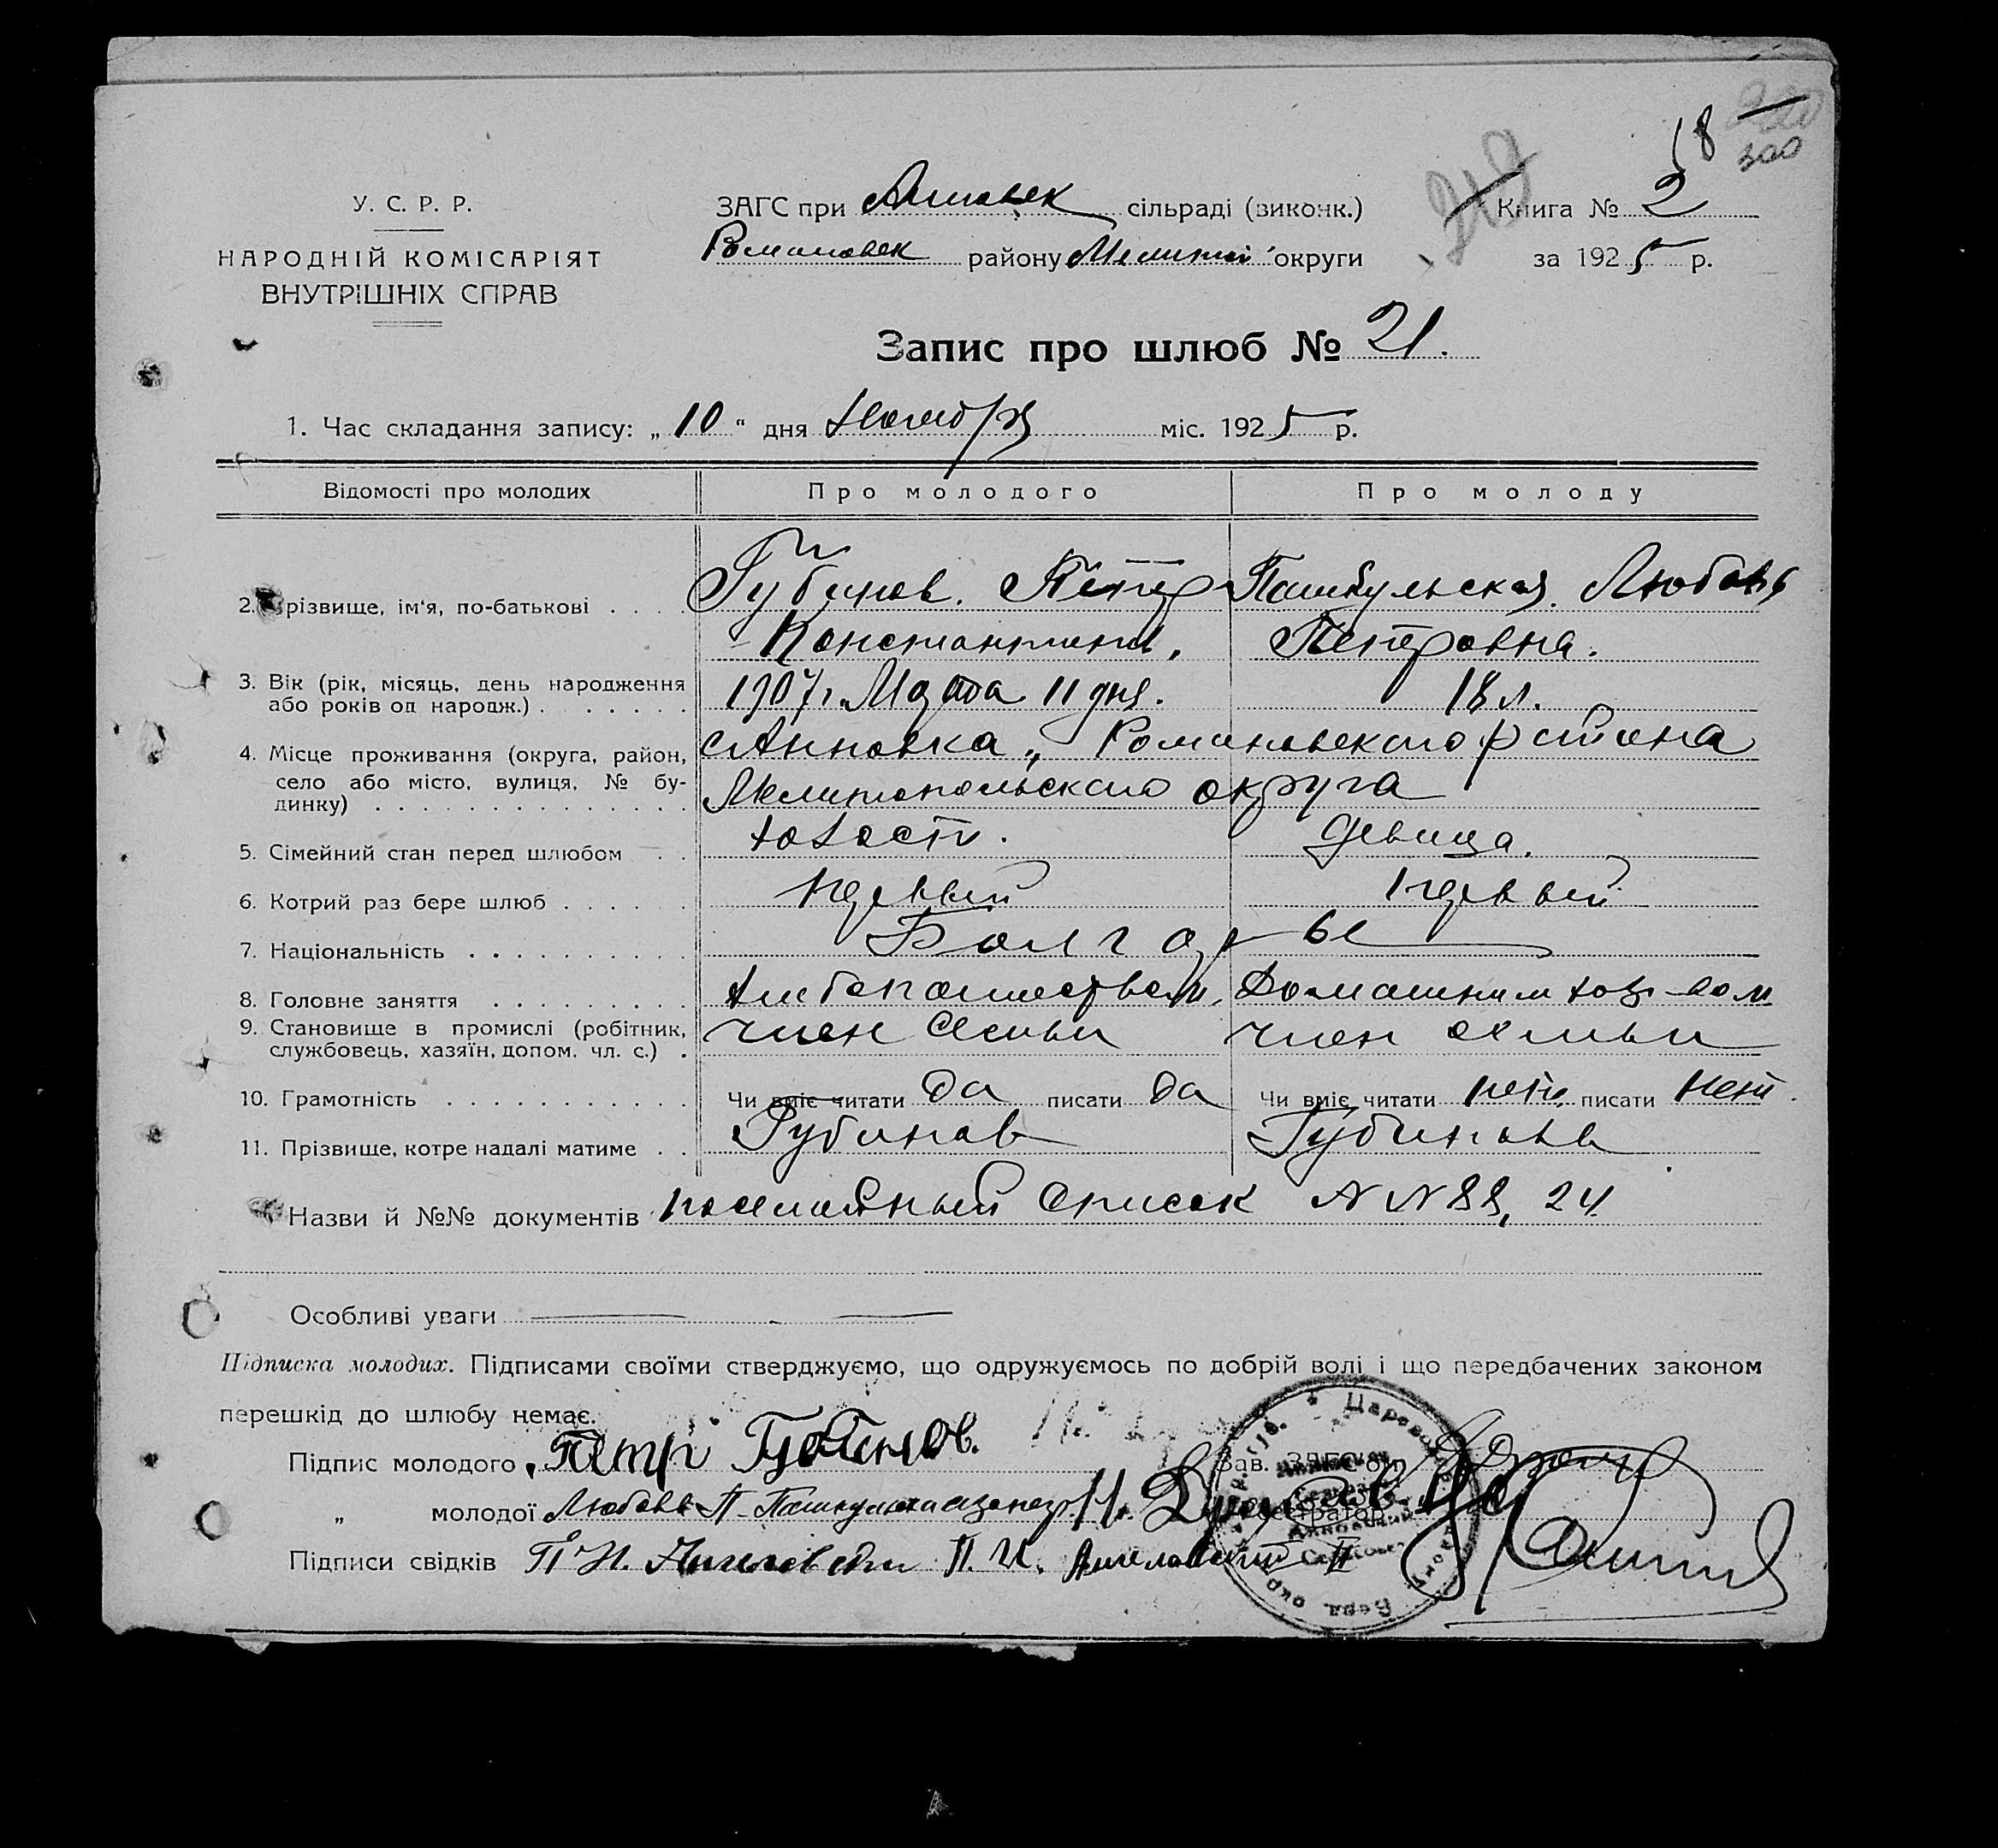 18
300
У. С. Р. Р.
НАРОДНІЙ КОМІСАРІЯТ
ВНУТРІШНІХ СПРАВ
ЗАГС при Анновск сільраді (виконк.)
Романовск району Мелитоп округи
Книга № 2
за 1925 р.
Запис про шлюб № 21.
1. Час складання запису: „ 10 “ дня Ноября міс. 1925 р.
Відомості про молодих Про молодого Про молоду
2. Прізвище, ім'я, по-батькові Губинов. Петр Пашкульская Любовь
Константин. Петровна.
3. Вік (рік, місяць, день народження або років од народж.) 1907 г. Марта 11 дня. 18 л.
4. Місце проживання (округа, район, село або місто, вулиця, № будинку) с Анновка, Романовского района
Мелитопольского округа
5. Сімейний стан перед шлюбом холост. девица.
6. Котрий раз бере шлюб первый первый
7. Національність Болгары
8. Головне заняття хлебопашеством, Домашним хозр-вом
9. Становище в промислі (робітник, службовець, хазяїн, допом. чл. с.) член семьи член семьи
10. Грамотність Чи вміє читати да писати да Чи вміє читати нет, писати нет.
11. Прізвище, котре надалі матиме Губинов Губинова
Назви й №№ документів посемейный список N N 88, 24
Особливі уваги
Підписка молодих. Підписами своїми стверджуємо, що одружуємось по добрій волі і що передбачених законом
перешкід до шлюбу немає.
Підпис молодого Петр Губинов. Зав. ЗАГС'ом
„ молодої Любовь П. Пашкульская
Підписи свідків П. И.